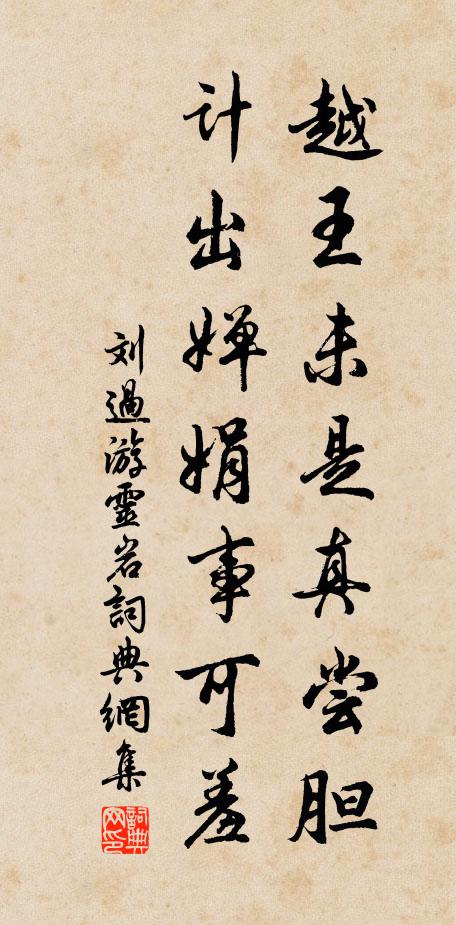 越王未是真尝胆
计出婵娟事可羞
刘過游靈岩詞典網集
詞典网印